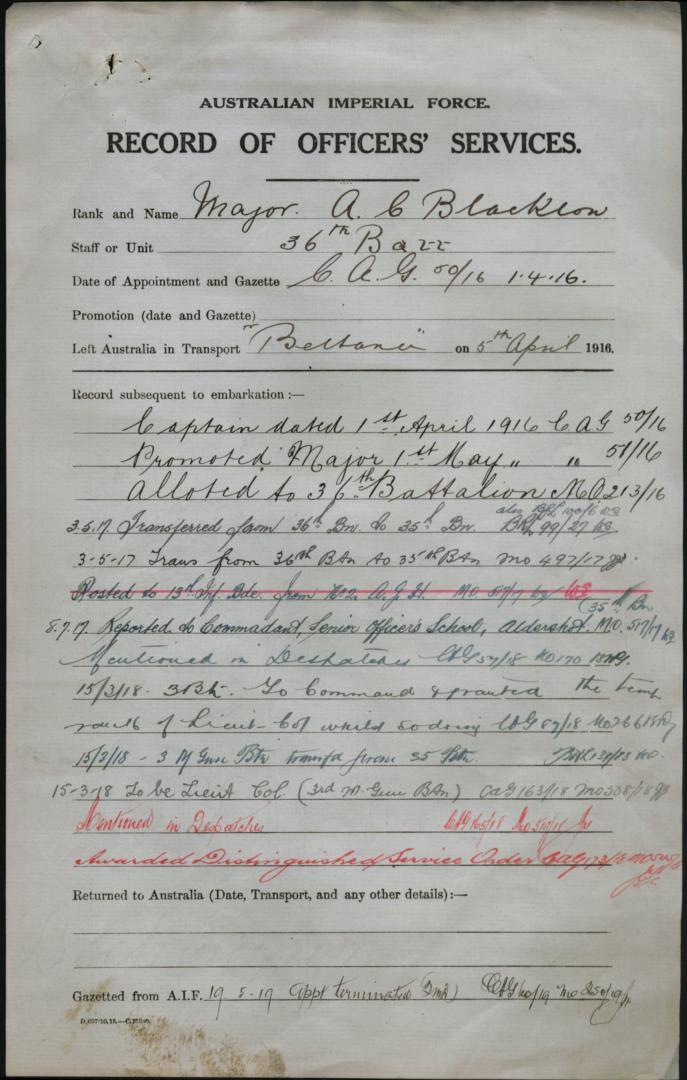 AUSTRALIAN IMPERIAL FORCE.
RECORD OF OFFICERS' SERVICES.
Rank and Name Major. A. C Blacklow
Staff or Unit 36th Batt
Date of Appointment and Gazette C. A. G. 50/16 1.4.16.
Promotion (date and Gazette)
Left Australia in Transport "Beltana" on 5th April 1916.
Record subsequent to embarkation :—
Captain dated 1st April 1916 C A G 50/16
Promoted Major 1st May " " 51/16
alloted to 36th Battalion M.O. 213/16
3.5.17 Transferred from 36th Bn to 35th Bn. 99/27
3-5-17 Trans from 36th Btn to 35th Btn mo 497/17
Posted to 13th Inf Bde. from No2. A.G.H. M.O. 517/17
(35th Bn
8.7.17. Reported to Commadant, Senior Officers School, Aldershot. M.O. 517/17
Mentioned in Despatches CAG 57/18 MO 170
15/3/18. 3 Bn. To Command & granted the temp
rank of Lieut-Col whilst so doing CAG 87/18 Mo 266
15/3/18 - 3 M Gun Btn transfd from 35 Btn.
15-3-18 To be Lieut Col. (3rd M. Gun Btn) CaG 163/18 mo 558/18
Mentioned in Despatches CAG 165/18
Awarded Distinguished Service Order CAG 173/18
Returned to Australia (Date, Transport, and any other details) :—
Gazetted from A.I.F. 19-5-19 Appt terminated CAG